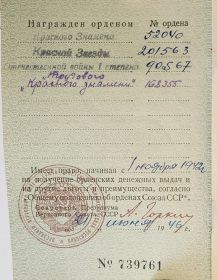 Награжден орденом № ордена
Красного Знамени 52040
Красной Звезды 201563
Отечественной войны I степени 90567
"Трудового
Красного знамени" 168355
1 ноября 194
Имеет право, начиная с
на получение орденских денежных выдач и
на другие льготы и преимущества, согласно
"Общему положению об орденах Союза ССР".
Секретарь Президиума
Верховного Совета СССР А. Горкин
июня 1949 г.
№ 739761